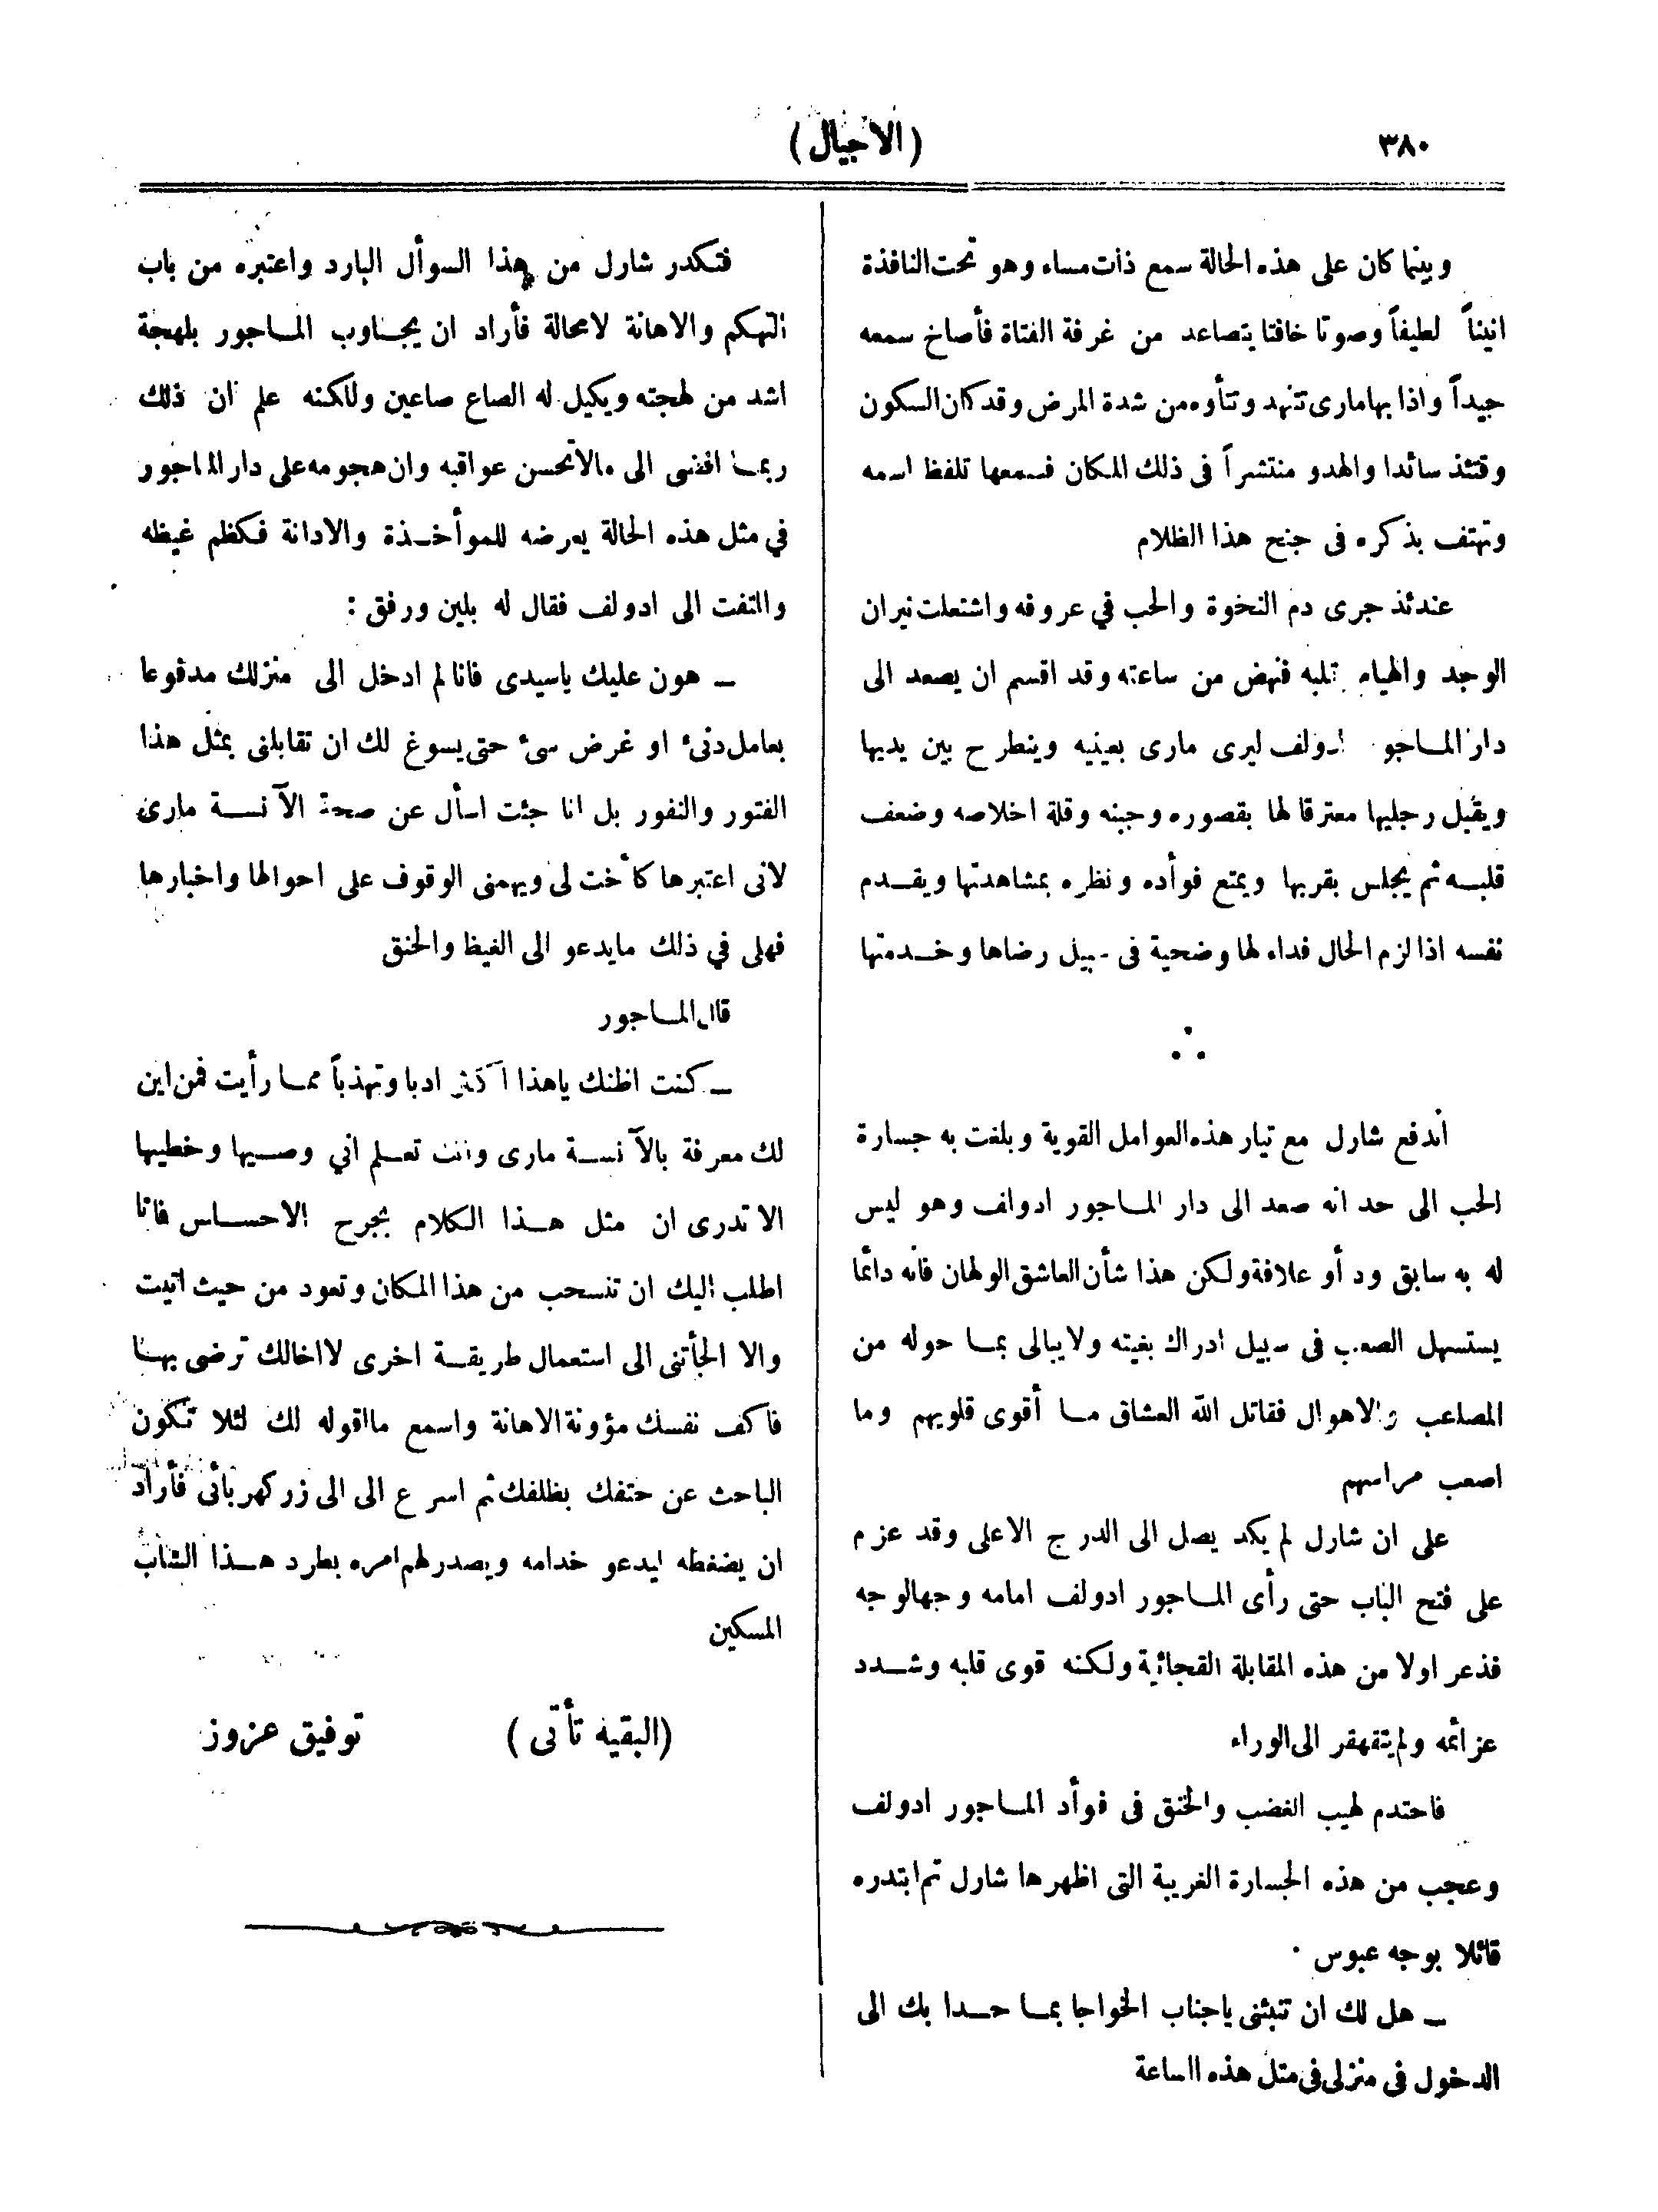 ٣٨٠
(الاجيال)
وبينما كان على هذه الحالة سمع ذات مساء وهو تحت النافذة
انيناً لطيفاً وصوتا خافتا يتصاعد من غرفة الفتاة فأصاخ سمعه
جيداً واذا بها مارى تتنهد وتتأوه من شدة المرض وقد كان السكون
وقتئذ سائدا والهدو منتشراً فى ذلك المكان فسمعها تلفظ اسمه
وتهتف بذكره فى جنح هذا الظلام
عندئذ جرى دم النخوة والحب في عروقه واشتعلت نيران
الوجد والهيام قلبه فنهض من ساعته وقد اقسم ان يصعد الى
دار الماجور ادولف ليرى مارى بعينيه وينطرح بين يديها
ويقبل رجليها معترفا لها بقصوره وجبنه وقلة اخلاصه وضعف
قلبه ثم يجلس بقربها ويمتع فوأده ونظره بمشاهدتها ويقدم
نفسه اذا لزم الحال فداء لها وضحية فى سبيل رضاها وخدمتها
اندفع شارل مع تيار هذه العوامل القوية وبلغت به جسارة
الحب الى حد انه صعد الى دار الماجور ادولف وهو ليس
له به سابق ود أو علاقة ولكن هذا شأن العاشق الولهان فانه دائما
يستسهل الصعب فى سبيل ادراك بغيته ولا يبالى بما حوله من
المصاعب والاهوال فقاتل الله العشاق ما أقوى قلوبهم وما
اصعب مراسهم
على ان شارل لم يكد يصل الى الدرج الاعلى وقد عزم
على فتح الباب حتى رأى الماجور ادولف امامه وجها لوجه
فذعر اولا من هذه المقابلة الفجائية ولكنه قوى قلبه وشدد
عزائمه ولم يتقهقر الى الوراء
فاحتدم لهيب الغضب والحنق فى فوأد الماجور ادولف
وعجب من هذه الجسارة الغريبة التى اظهرها شارل ثم ابتدره
قائلا بوجه عبوس ·
ــ هل لك ان تنبئنى ياجناب الخواجا بما حدا بك الى
الدخول فى منزلى فى مثل هذه الساعة
فتكدر شارل من هذا السوأل البارد واعتبره من باب
التهكم والاهانة لامحالة فأراد ان يجاوب الماجور بلهجة
اشد من لهجته ويكيل له الصاع صاعين ولاكنه علم ان ذلك
ربما افضى الى مالاتحسن عواقبه وان هجومه على دار الماجور
في مثل هذه الحالة يعرضه للموأخذة والادانة فكظم غيظه
والتفت الى ادولف فقال له بلين ورفق :
ــ هون عليك ياسيدى فانا لم ادخل الى منزلك مدفوعا
بعامل دنئ او غرض سئ حتى يسوغ لك ان تقابلنى بمثل هذا
الفتور والنفور بل انا جئت اسأل عن صحة الآنسة مارى
لانى اعتبرها كأخت لى ويهمنى الوقوف على احوالها واخبارها
فهلى في ذلك مايدعو الى الغيظ والحنق
قال الماجور
ــ كنت اظنك ياهذا اكثر ادبا وتهذباً مما رأيت فمن اين
لك معرفة بالآنسة مارى وانت تعلم اني وصيها وخطيبها
الا تدرى ان مثل هذا الكلام يجرح الاحساس فانا
اطلب اليك ان تنسحب من هذا المكان وتعود من حيث اتيت
والا الجأتنى الى استعمال طريقة اخرى لااخالك ترضى بها
فاكف نفسك مؤونة الاهانة واسمع مااقوله لك لئلا تكون
الباحث عن حتفك بظلفك ثم اسرع الى الى زر كهربائى فأراد
ان يضغطه ليدعو خدامه ويصدر لهم امره بطرد هذا الشاب
المسكين
(البقيه تأتى) توفيق عزوز